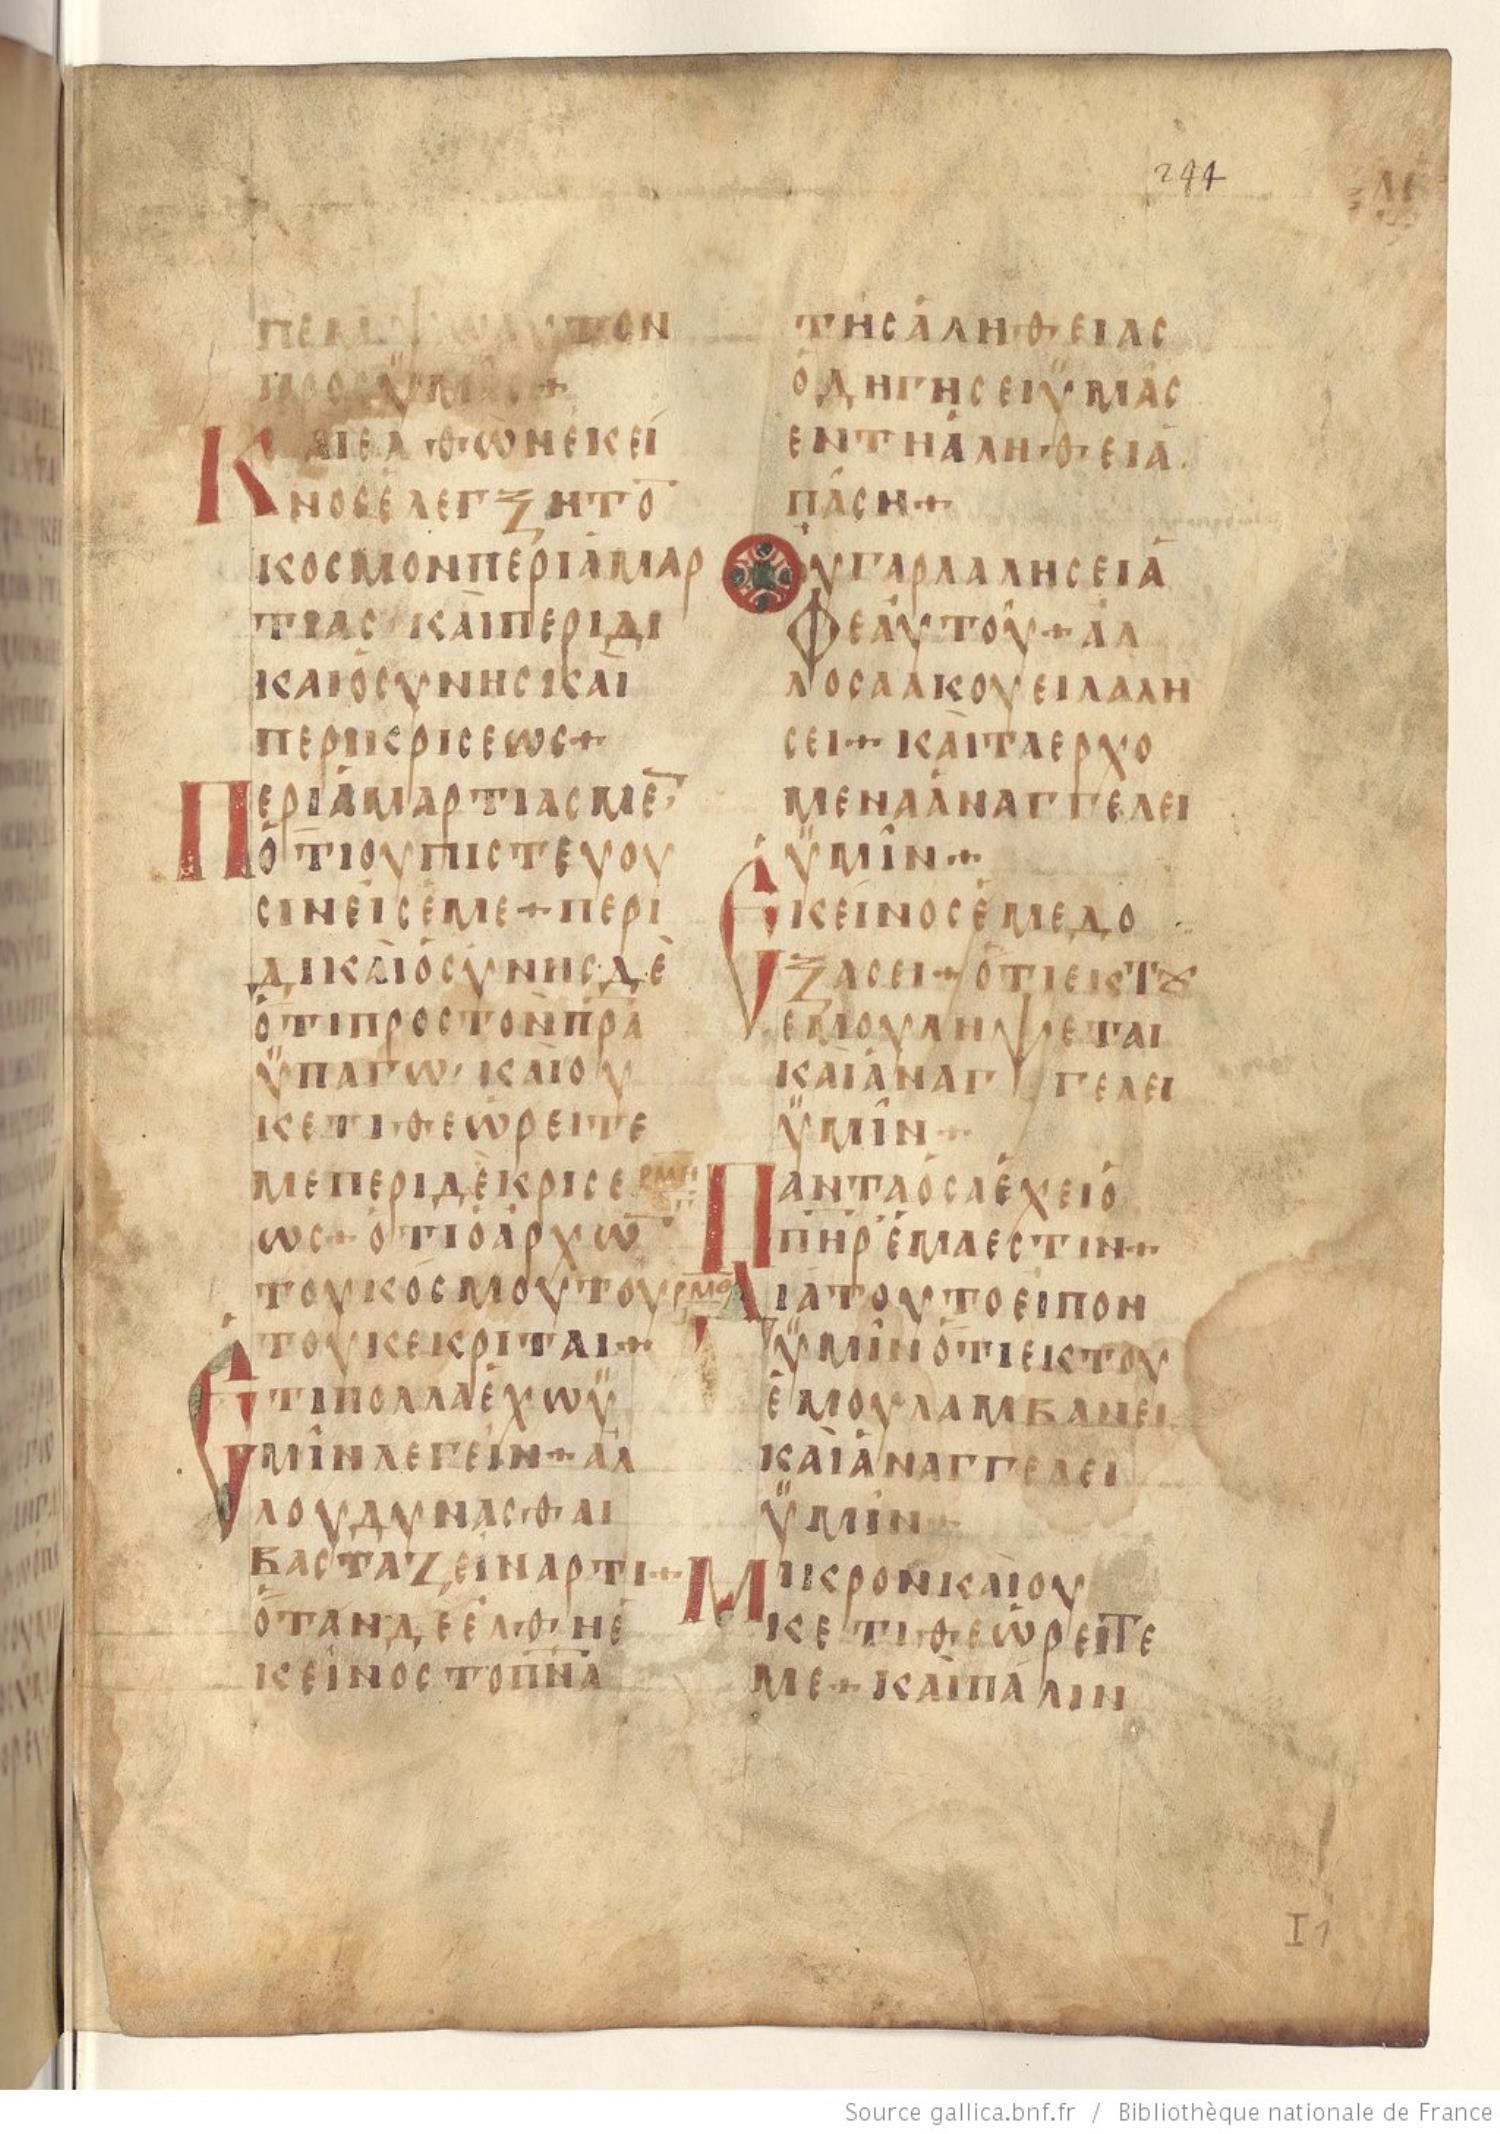 244
ΠΕΜΨΩΑΥΤΟΝ
ΠΡΟΣΫΜΑΣ+
ΚΑΙΕΛΘΩΝΕΚΕΙ
ΝΟΣΕΛΕΓΞΗΤΟ̅
ΚΟΣΜΟΝΠΕΡΙΑΜΑΡ
ΤΙΑΣΚΑΙΠΕΡΙΔΙ
ΚΑΙΟΣΥΝΗΣΚΑΙ
ΠΕΡΙΚΡΙΣΕΩΣ+
ΠΕΡΙΑΜΑΡΤΙΑΣΜΕ̅
ΟΤΙΟΥΠΙΣΤΕΥΟΥ
ΣΙΝΕΙΣΕΜΕ+ΠΕΡΙ
ΔΙΚΑΙΟΣΥΝΗΣΔΕ
ΟΤΙΠΡΟΣΤΟΝΠ̅Ρ̅Α̅
ΫΠΑΓΩ,ΚΑΙΟΥ
ΚΕΤΙΘΕΩΡΕΙΤΕ
ΜΕΠΕΡΙΔΕΚΡΙΣΕ
ΩΣ+ΟΤΙΟΑΡΧΩ̅
ΤΟΥΚΟΣΜΟΥΤΟΥ
ΤΟΥΚΕΚΡΙΤΑΙ+
ΕΤΙΠΟΛΛΑΕΧΩΫ
ΜΙΝΛΕΓΕΙΝ+ΑΛ
ΛΟΥΔΥΝΑΣΘΑΙ
ΒΑΣΤΑΖΕΙΝΑΡΤΙ+
ΟΤΑΝΔΕΕΛΘΗΕ
ΚΕΙΝΟΣΤΟΠ̅Ν̅Α̅
ΡΜΗ
ΡΜΘ
ΤΗΣΑΛΗΘΕΙΑΣ
ΟΔΗΓΗΣΕΙΫΜΑΣ
ΕΝΤΗΑΛΗΘΕΙΑ
ΠΑΣΗ+
ΟΥΓΑΡΛΑΛΗΣΕΙΑ
ΦΕΑΥΤΟΥ+ΑΛ
ΛΟΣΑΑΚΟΥΕΙΛΑΛΗ
ΣΕΙ+ΚΑΙΤΑΕΡΧΟ
ΜΕΝΑΑΝΑΓΓΕΛΕΙ
ΫΜΙΝ+
ΕΚΕΙΝΟΣΕΜΕΔΟ
ΞΑΣΕΙ+ΟΤΙΕΚΤȢ
ΕΜΟΥΛΗΨΕΤΑΙ
ΚΑΙΑΝΑΓΓΕΛΕΙ
ΫΜΙΝ+
ΠΑΝΤΑΟΣΑΕΧΕΙΟ
Π̅Η̅Ρ̅ΕΜΑΕΣΤΙΝ+
ΔΙΑΤΟΥΤΟΕΙΠΟΝ
ΫΜΙΝΟΤΙΕΚΤΟΥ
ΕΜΟΥΛΑΜΒΑΝΕΙ
ΚΑΙΑΝΑΓΓΕΛΕΙ
ΫΜΙΝ+
ΜΙΚΡΟΝΚΑΙΟΥ
ΚΕΤΙΘΕΩΡΕΙΤΕ
ΜΕ+ΚΑΙΠΑΛΙΝ
I1
Source gallica.bnf.fr / Bibliothèque nationale de France